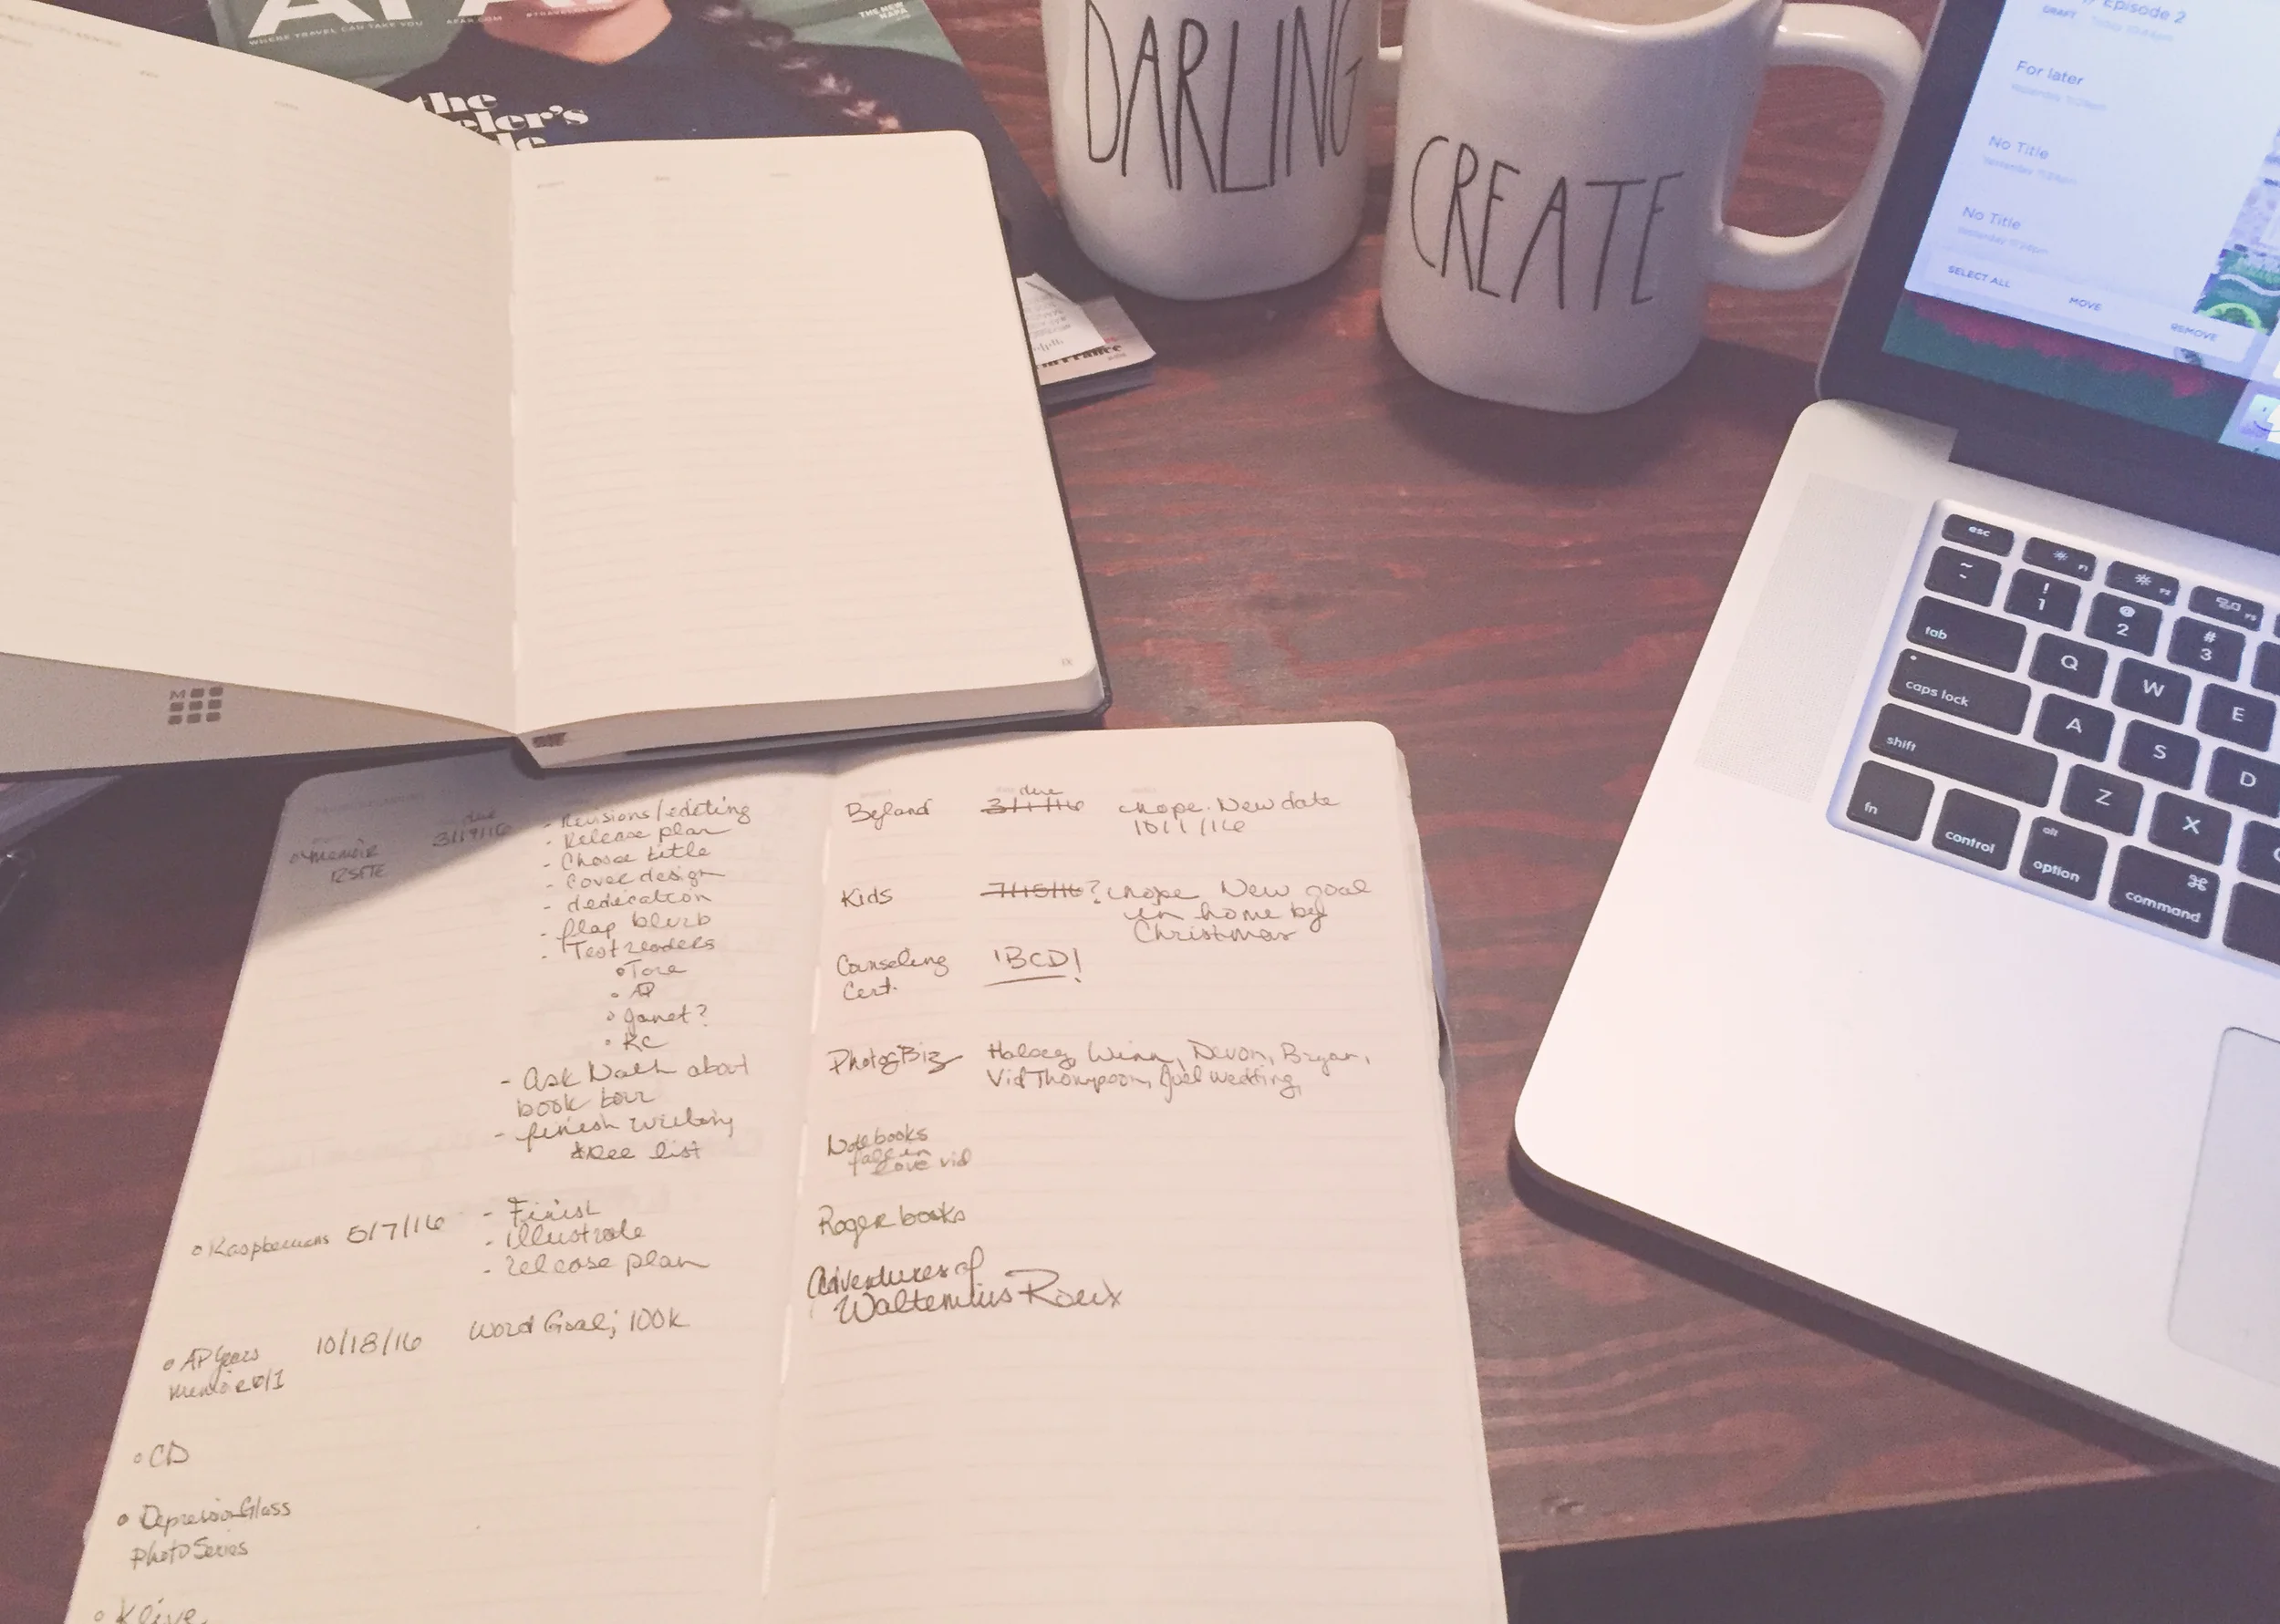 WHERE TRAVEL CAN TAKE YOU
AFAR.COM
THE NEW
NAPA
the
eler's
DARLING
CREATE
Episode 2
DRAFT
For later
No Title
No Title
SELECT ALL
MOVE
REMOVE
esc
F1
F2
F3
~
!
1
@
2
#
3
tab
Q
W
E
caps lock
A
S
D
shift
Z
X
fn
control
alt
option
⌘
command
M
ix
memoir
RSITE
due
3/19/16
- Revisions/editing
- Release plan
- Choose title
- Cover design
- dedication
- flap blurb
- Test readers
° Tore
° AP
° Janet?
° KC
- Ask Nath about
book tour
- finish writing
* see list
° Raspberries 5/7/16
- Finish
- illustrate
- release plan
° AP Years
memoir
10/18/16
Word Goal; 100k
° CD
° Depression Glass
Photo Series
° Klive
Byland
due
3/1/16
nope. New date
10/1/16
Kids
7/15/16? nope New goal
in home by
Christmas
Counseling
Cert.
!BCD!
PhotogBiz
Halsey, Winn, Devon, Bryan,
Vid Thompson, Juel wedding,
Notebooks
fall in
love vid
Roger books
Adventures of
Waltemius Roux